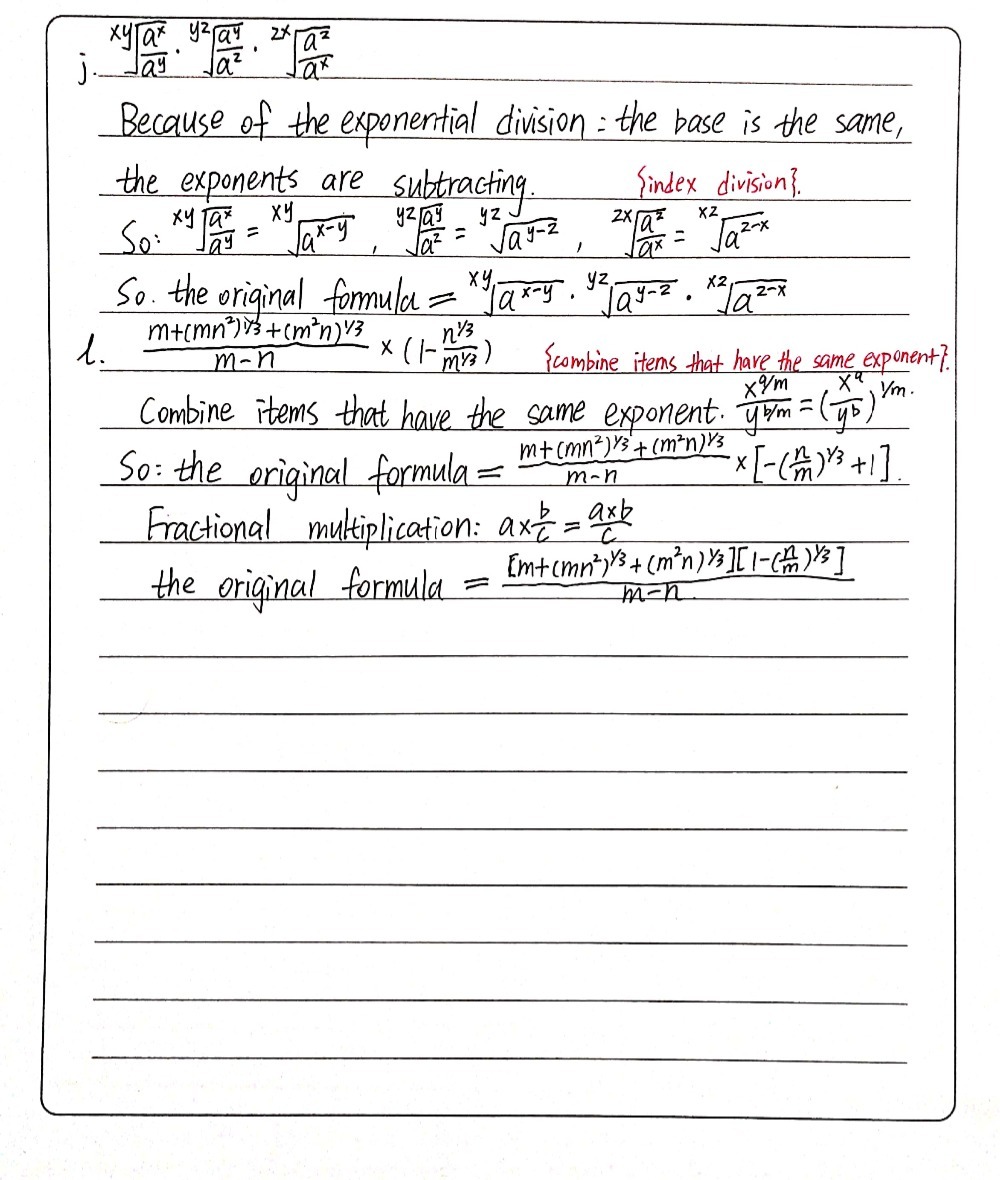 j. $\sqrt[xy]{\frac{a^x}{a^y}} \cdot \sqrt[yz]{\frac{a^y}{a^z}} \cdot \sqrt[zx]{\frac{a^z}{a^x}}$
Because of the exponential division : the base is the same,
the exponents are subtracting. {index division}.
So: $\sqrt[xy]{\frac{a^x}{a^y}} = \sqrt[xy]{a^{x-y}}$ , $\sqrt[yz]{\frac{a^y}{a^z}} = \sqrt[yz]{a^{y-z}}$ , $\sqrt[zx]{\frac{a^z}{a^x}} = \sqrt[xz]{a^{z-x}}$
So. the original formula = $\sqrt[xy]{a^{x-y}} \cdot \sqrt[yz]{a^{y-z}} \cdot \sqrt[xz]{a^{z-x}}$
l. $\frac{m+(mn^2)^{1/3}+(m^2n)^{1/3}}{m-n} \times (1-\frac{n^{1/3}}{m^{1/3}})$ {combine items that have the same exponent}.
Combine items that have the same exponent. $\frac{x^{a/m}}{y^{b/m}} = (\frac{x^a}{y^b})^{1/m}$.
So: the original formula = $\frac{m+(mn^2)^{1/3}+(m^2n)^{1/3}}{m-n} \times [-(\frac{n}{m})^{1/3}+1]$.
Fractional multiplication: $a \times \frac{b}{c} = \frac{a \times b}{c}$
the original formula = $\frac{[m+(mn^2)^{1/3}+(m^2n)^{1/3}][1-(\frac{n}{m})^{1/3}]}{m-n}$